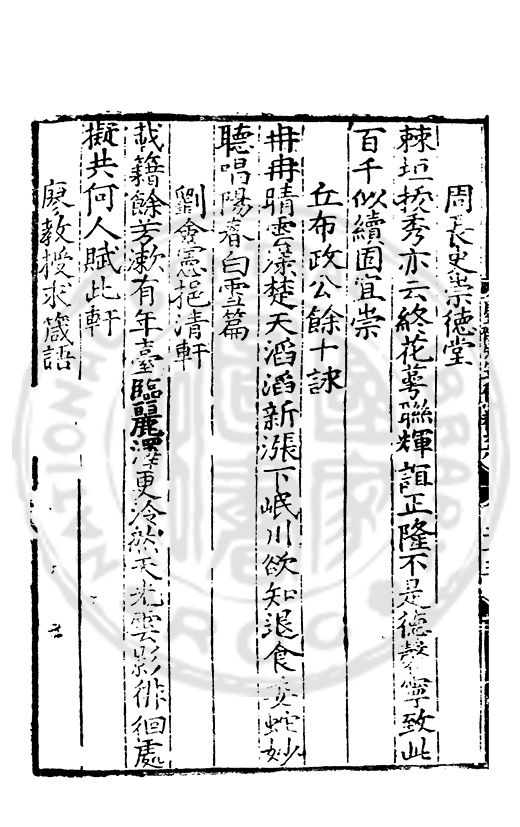 周長史崇德堂
棘垣拔秀亦云終花萼聯輝誼正隆不是德馨寧致此
百千似續固宜崇
丘布政公餘十詠
冉冉晴雲漾楚天滔滔新漲下岷川欲知退食委蛇妙
聽唱陽春白雪篇
劉僉憲挹清軒
載籍餘芳漱有年臺臨麗澤更泠然天光雲影徘徊處
擬共何人賦此軒
廖教授求箴語